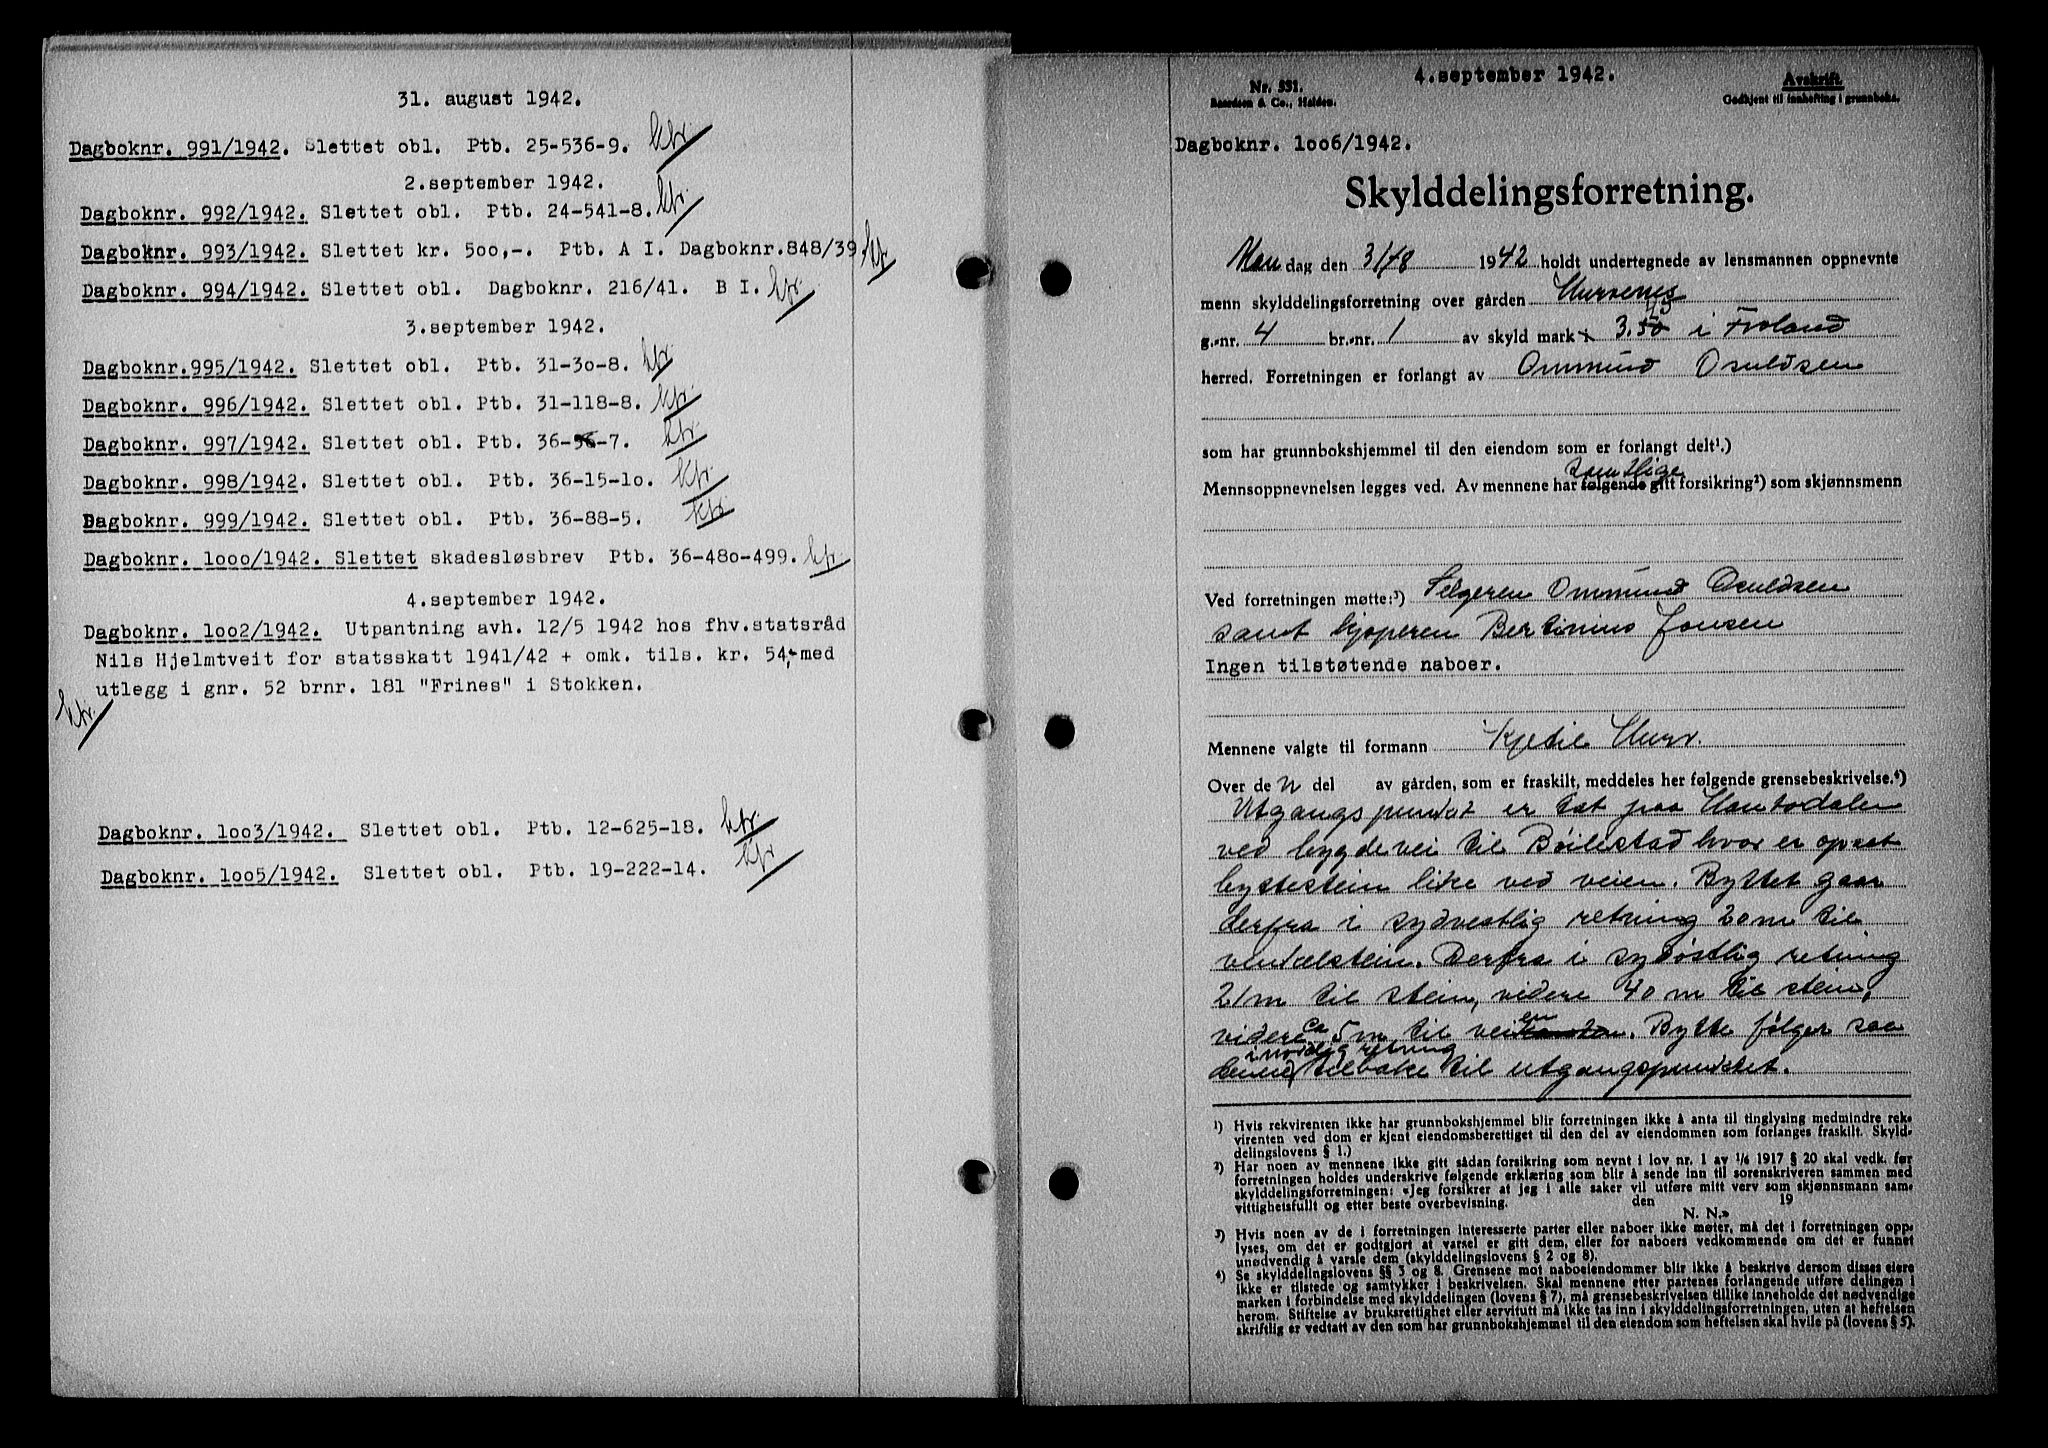 31. august 1942.
Dagboknr. 991/1942. Slettet obl. Ptb. 25-536-9. kfr.
2.september 1942.
Dagboknr. 992/1942. Slettet obl. Ptb. 24-541-8. kfr.
Dagboknr. 993/1942. Slettet kr. 500,-. Ptb. A I. Dagboknr.848/39. kfr
Dagboknr. 994/1942. Slettet obl. Dagboknr. 216/41. B I. kfr.
3.september 1942.
Dagboknr.995/1942. Slettet obl. Ptb. 31-30-8. kfr
Dagboknr. 996/1942. Slettet obl. Ptb. 31-118-8. kfr.
Dagboknr. 997/1942. Slettet obl. Ptb. 36-56-7. kfr.
Dagboknr. 998/1942. Slettet obl. Ptb. 36-15-10. kfr.
Dagboknr. 999/1942. Slettet obl. Ptb. 36-88-5. kfr
Dagboknr. 1000/1942. Slettet skadesløsbrev Ptb. 36-480-499. kfr.
4.september 1942.
Dagboknr. 1002/1942. Utpantning avh. 12/5 1942 hos fhv.statsråd
Nils Hjelmtveit for statsskatt 1941/42 + omk. tils. kr. 54,- med
utlegg i gnr. 52 brnr. 181 "Frines" i Stokken.
kfr.
Dagboknr. 1003/1942. Slettet obl. Ptb. 12-625-18. kfr.
Dagboknr. 1005/1942. Slettet obl. Ptb. 19-222-14. kfr
4.september 1942.
Nr. 531. Avskrift
Baardsen & Co., Halden. Godkjent til innhefting i grunnboka.
Dagboknr. 1006/1942.
Skylddelingsforretning.
Mandag den 31/8 1942 holdt undertegnede av lensmannen oppnevnte
menn skylddelingsforretning over gården Hurvenes
g.-nr. 4 br.-nr. 1 av skyld mark 3.50 i Froland
herred. Forretningen er forlangt av Ommund Osuldsen
som har grunnbokshjemmel til den eiendom som er forlangt delt¹.)
samtlige
Mennsoppnevnelsen legges ved. Av mennene har følgende gitt forsikring²) som skjønnsmenn
Ved forretningen møtte:³) Selgeren Ommund Osuldsen
samt kjøperen Bertinius Jonsen
Ingen tilstøtende naboer.
Mennene valgte til formann Kjetil Hurv.
Over de n del av gården, som er fraskilt, meddeles her følgende grensebeskrivelse.⁴)
Utgangspunktet er tat paa
ved bygdevei til Bøilestad hvor er opsat
byttestein like ved veien. Byttet gaar
derfra i sydvestlig retning 20 m til
stein. Derfra i sydøstlig retning
21 m til stein, videre 40 m til stein,
videre ca 5 m til veien. Bytte følger saa
i nordlig retning
denne tilbake til utgangspunktet.
¹) Hvis rekvirenten ikke har grunnbokshjemmel blir forretningen ikke å anta til tinglysing medmindre rek-
virenten ved dom er kjent eiendomsberettiget til den del av eiendommen som forlanges fraskilt. Skyld-
delingslovens § 1.)
²) Har noen av mennene ikke gitt sådan forsikring som nevnt i lov nr. 1 av 1/6 1917 § 20 skal vedk. før
forretningen holdes underskrive følgende erklæring som blir å sende inn til sorenskriveren sammen med
skylddelingsforretningen: «Jeg forsikrer at jeg i alle saker vil utføre mitt verv som skjønnsmann sam-
vittighetsfullt og etter beste overbevisning. den 19
N. N.»
³) Hvis noen av de i forretningen interesserte parter eller naboer ikke møter, må det i forretningen opp-
lyses, om det er godtgjort at varsel er gitt dem, eller for naboers vedkommende om det er funnet
unødvendig å varsle dem (skylddelingslovens § 2 og 8).
⁴) Se skylddelingslovens §§ 3 og 8. Grensene mot naboeiendommer blir ikke å beskrive dersom disses eiere
ikke er tilstede og samtykker i beskrivelsen. Skal mennene etter partenes forlangende utføre delingen i
marken i forbindelse med skylddelingen (lovens § 7), må grensebeskrivelsen tillike inneholde det nødvendige
herom. Stiftelse av bruksrettighet eller servitutt må ikke tas inn i skylddelingsforretningen, uten at heftelsen
skriftlig er vedtatt av den som har grunnbokshjemmel til den eiendom som heftelsen skal hvile på (lovens § 5).